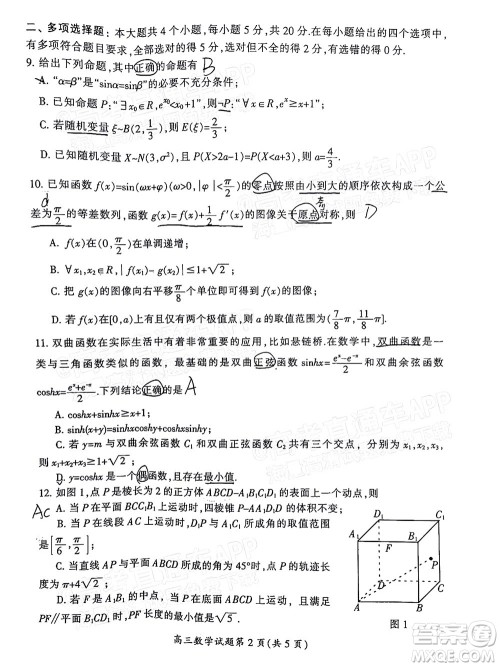 二、多项选择题：本大题共4个小题，每小题5分，共20分．在每小题给出的四个选项中，
有多项符合题目要求，全部选对的得5分，选对但不全的得2分，有选错的得0分．
9. 给出下列命题，其中正确的命题有 B
A. “α=β”是“sinα=sinβ”的必要不充分条件；
B. 已知命题P：“∃x₀∈R，e^{x₀}<x₀+1”，则¬P：“∀x∈R，e^x≥x+1”；
C. 若随机变量ξ~B(2, 1/3)，则E(ξ)=2/3；
D. 已知随机变量X~N(3, σ²)，且2P(X>2a-1)=1+P(X≤a)，则a=4/3．
10. 已知函数f(x)=sin(ωx+φ)(ω>0,|φ|<π/2)的零点按照由小到大的顺序依次构成一个公
差为π/2的等差数列，函数g(x)=f(x)+1/2f′(x)的图像关于原点对称，则 D
A. f(x)在(0, π/2)单调递增；
B. ∀x₁,x₂∈R，|f(x₁)-g(x₂)|≤1+√2；
C. 把g(x)的图像向右平移π/8个单位即可得到f(x)的图像；
D. 若f(x)在[0,a)上有且仅有两个极值点，则a的取值范围为(7/8π, 11/8π]．
11. 双曲函数在实际生活中有着非常重要的应用，比如悬链桥．在数学中，双曲函数是一
类与三角函数类似的函数，最基础的是双曲正弦函数sinhx=(e^x-e^{-x})/2和双曲余弦函数
coshx=(e^x+e^{-x})/2．下列结论正确的是 A
A. coshx+sinhx≥1
B. sinh(x+y)=sinhx·coshy+coshx·sinhy
D. y=coshx是一个偶函数，且存在最小值．
12. 如图1，点P是棱长为2的正方体ABCD-A₁B₁C₁D₁的表面上一个动点，则 AC
A. 当P在平面BCC₁B₁上运动时，四棱锥P-AA₁D₁D的体积不变；
B. 当P在线段AC上运动时，D₁P与A₁C₁所成角的取值范围是
[π/6, π/2]；
C. 当直线AP与平面ABCD所成的角为45°时，点P的轨迹长度
为π+4√2；
图1
高三数学试题第2页(共5页)